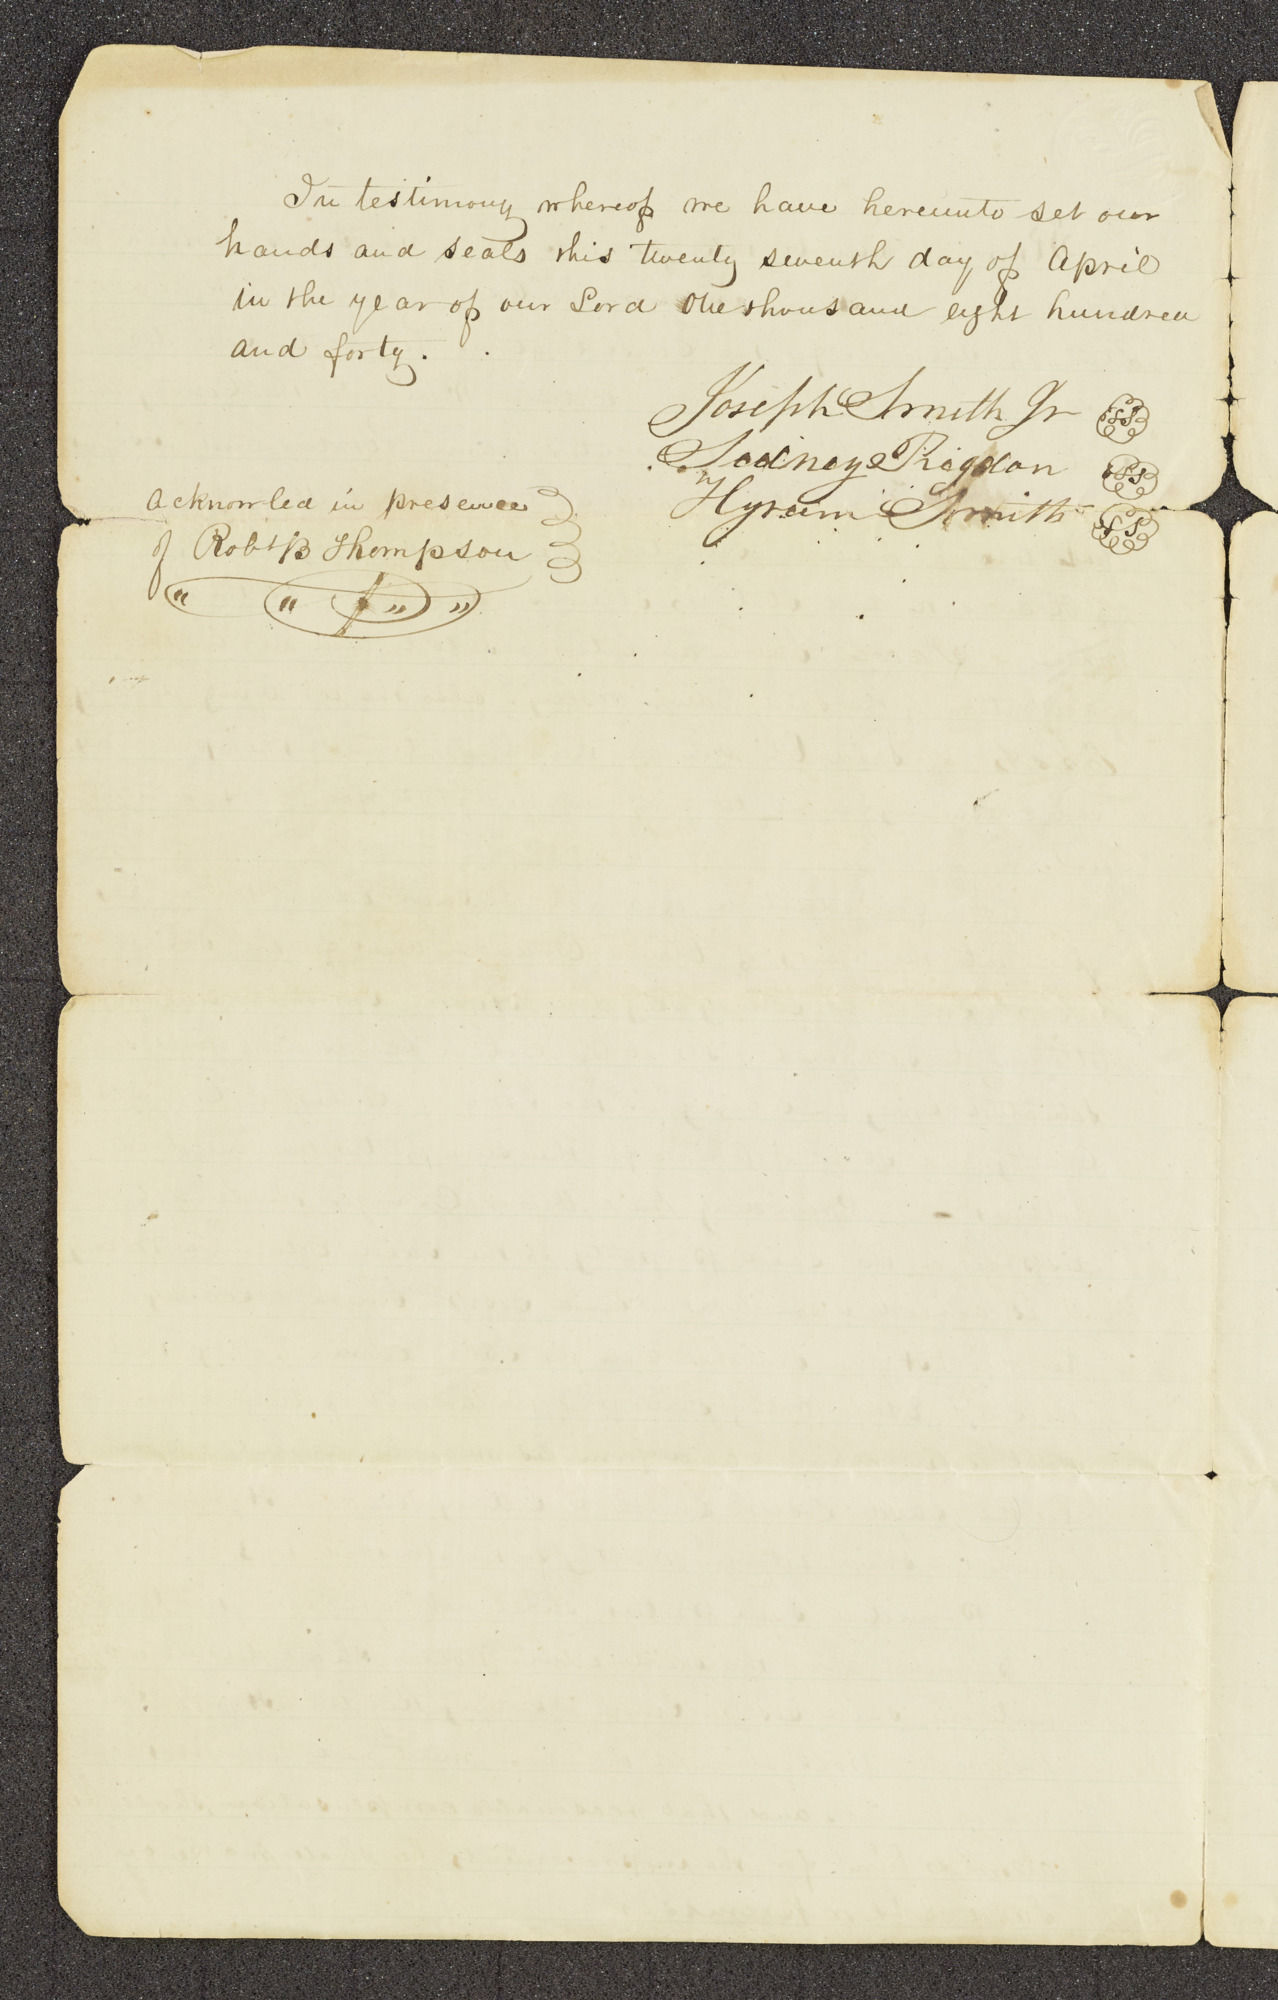 In testimony whereof we have hereunto set our
hands and seals this twenty seventh day of April
in the year of our Lord One thousand eight hundred
and forty.
Joseph Smith Jr
Sidney Rigdon
Hyrum Smith
acknowled in presence
of Robt B Thompson